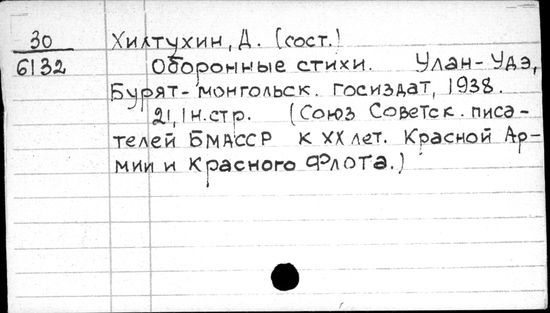 30 Хилтухин, Д. (сост.)
6132 Оборонные стихи. Улан-Удэ,
Бурят-монгольск. госиздат, 1938.
21,1н.стр. (Союз Советск. писа-
телей БМАССР к XX лет. Красной Ар-
мии и Красного Флота.)